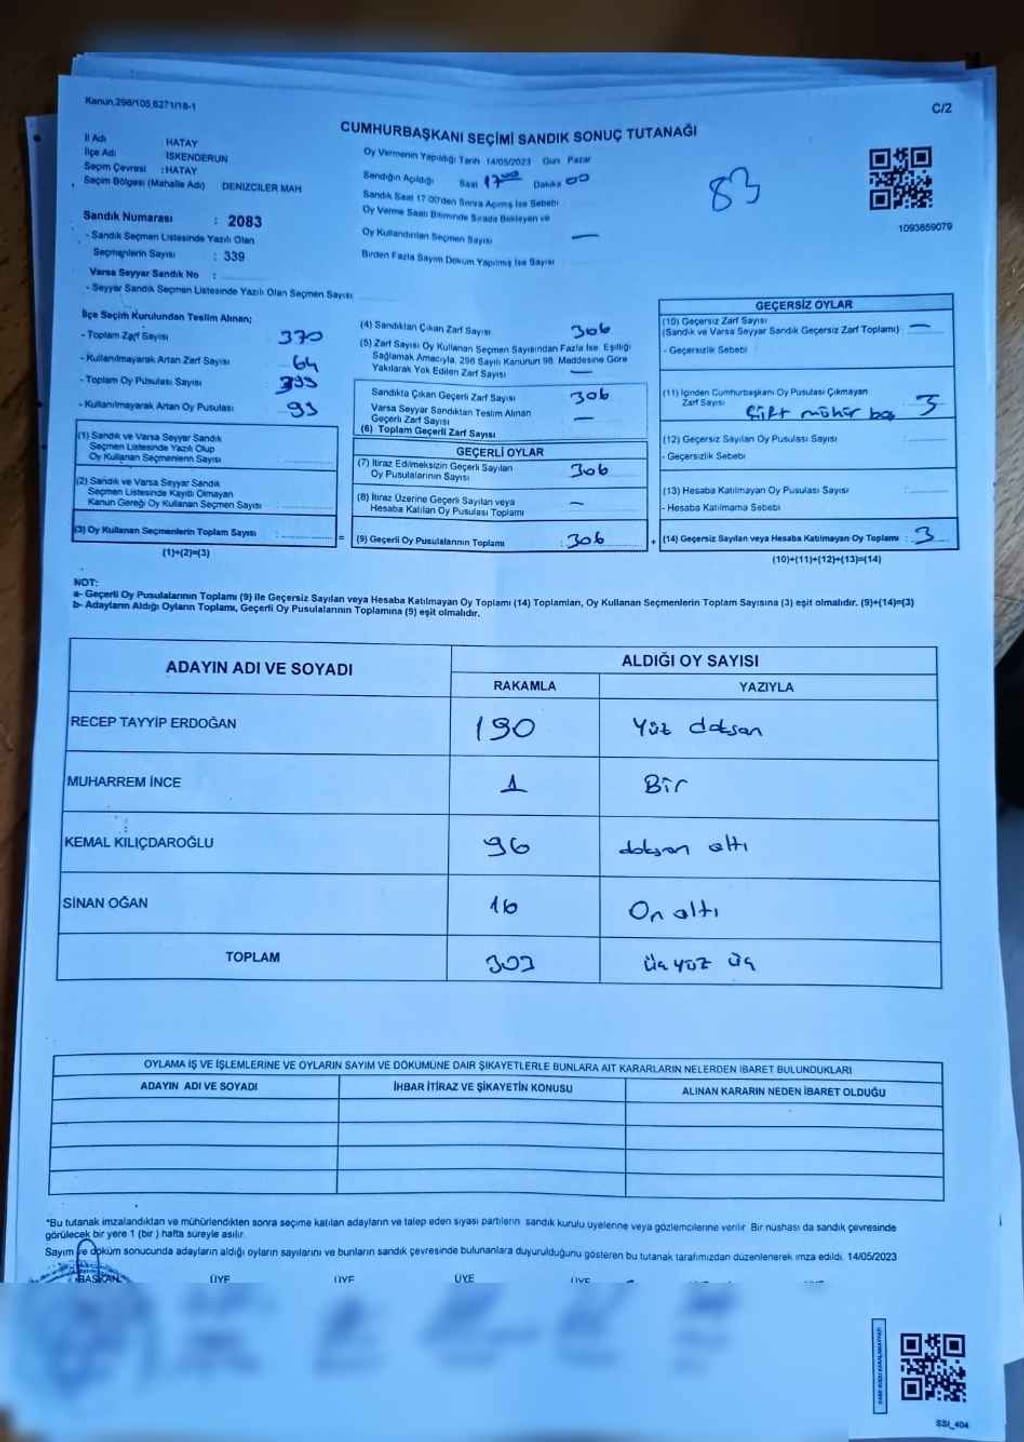 Kanun.298/105,6271/18-1
C/2
CUMHURBAŞKANI SEÇİMİ SANDIK SONUÇ TUTANAĞI
İl Adı HATAY
İlçe Adı İSKENDERUN
Seçim Çevresi : HATAY
Seçim Bölgesi (Mahalle Adı) DENİZCİLER MAH
Sandık Numarası : 2083
- Sandık Seçmen Listesinde Yazılı Olan
Seçmenlerin Sayısı : 339
Varsa Seyyar Sandık No :
- Seyyar Sandık Seçmen Listesinde Yazılı Olan Seçmen Sayısı
Oy Vermenin Yapıldığı Tarih 14/05/2023 Gün Pazar
Sandığın Açıldığı Saat 17 00 Dakika 00
Sandık Saat 17:00'den Sonra Açılmış İse Sebebi
Oy Verme Saati Bitiminde Sırada Bekleyen ve
Oy Kullandırılan Seçmen Sayısı —
Birden Fazla Sayım Döküm Yapılmış İse Sayısı
83
1093859079
İlçe Seçim Kurulundan Teslim Alınan;
- Toplam Zarf Sayısı 370
- Kullanılmayarak Artan Zarf Sayısı 64
- Toplam Oy Pusulası Sayısı
- Kullanılmayarak Artan Oy Pusulası 93
(1) Sandık ve Varsa Seyyar Sandık
Seçmen Listesinde Yazılı Olup
Oy Kullanan Seçmenlerin Sayısı
(2) Sandık ve Varsa Seyyar Sandık
Seçmen Listesinde Kayıtlı Olmayan
Kanun Gereği Oy Kullanan Seçmen Sayısı
(3) Oy Kullanan Seçmenlerin Toplam Sayısı :
(1)+(2)=(3)
(4) Sandıktan Çıkan Zarf Sayısı 306
(5) Zarf Sayısı Oy Kullanan Seçmen Sayısından Fazla İse, Eşitliği
Sağlamak Amacıyla, 298 Sayılı Kanunun 98. Maddesine Göre
Yakılarak Yok Edilen Zarf Sayısı —
Sandıkta Çıkan Geçerli Zarf Sayısı 306
Varsa Seyyar Sandıktan Teslim Alınan
Geçerli Zarf Sayısı —
(6) Toplam Geçerli Zarf Sayısı
GEÇERLİ OYLAR
(7) İtiraz Edilmeksizin Geçerli Sayılan
Oy Pusulalarının Sayısı 306
(8) İtiraz Üzerine Geçerli Sayılan veya
Hesaba Katılan Oy Pusulası Toplamı —
= (9) Geçerli Oy Pusulalarının Toplamı : 306
GEÇERSİZ OYLAR
(10) Geçersiz Zarf Sayısı
(Sandık ve Varsa Seyyar Sandık Geçersiz Zarf Toplamı) —
- Geçersizlik Sebebi
(11) İçinden Cumhurbaşkanı Oy Pusulası Çıkmayan
Zarf Sayısı Çift mühür bas 3
(12) Geçersiz Sayılan Oy Pusulası Sayısı
- Geçersizlik Sebebi
(13) Hesaba Katılmayan Oy Pusulası Sayısı :
- Hesaba Katılmama Sebebi
+ (14) Geçersiz Sayılan veya Hesaba Katılmayan Oy Toplamı : 3
(10)+(11)+(12)+(13)=(14)
NOT:
a- Geçerli Oy Pusulalarının Toplamı (9) ile Geçersiz Sayılan veya Hesaba Katılmayan Oy Toplamı (14) Toplamları, Oy Kullanan Seçmenlerin Toplam Sayısına (3) eşit olmalıdır. (9)+(14)=(3)
b- Adayların Aldığı Oyların Toplamı, Geçerli Oy Pusulalarının Toplamına (9) eşit olmalıdır.
ADAYIN ADI VE SOYADI ALDIĞI OY SAYISI
RAKAMLA YAZIYLA
RECEP TAYYİP ERDOĞAN 190 Yüz doksan
MUHARREM İNCE 1 Bir
KEMAL KILIÇDAROĞLU 96 doksan altı
SİNAN OĞAN 16 On altı
TOPLAM 303 üç yüz üç
OYLAMA İŞ VE İŞLEMLERİNE VE OYLARIN SAYIM VE DÖKÜMÜNE DAİR ŞİKAYETLERLE BUNLARA AİT KARARLARIN NELERDEN İBARET BULUNDUKLARI
ADAYIN ADI VE SOYADI İHBAR İTİRAZ VE ŞİKAYETİN KONUSU ALINAN KARARIN NEDEN İBARET OLDUĞU
*Bu tutanak imzalandıktan ve mühürlendikten sonra seçime katılan adayların ve talep eden siyasi partilerin sandık kurulu üyelerine veya gözlemcilerine verilir. Bir nüshası da sandık çevresinde
görülecek bir yere 1 (bir) hafta süreyle asılır.
Sayım ve döküm sonucunda adayların aldığı oyların sayılarını ve bunların sandık çevresinde bulunanlara duyurulduğunu gösteren bu tutanak tarafımızdan düzenlenerek imza edildi. 14/05/2023
BAŞKAN ÜYE ÜYE ÜYE ÜYE
SSI_404